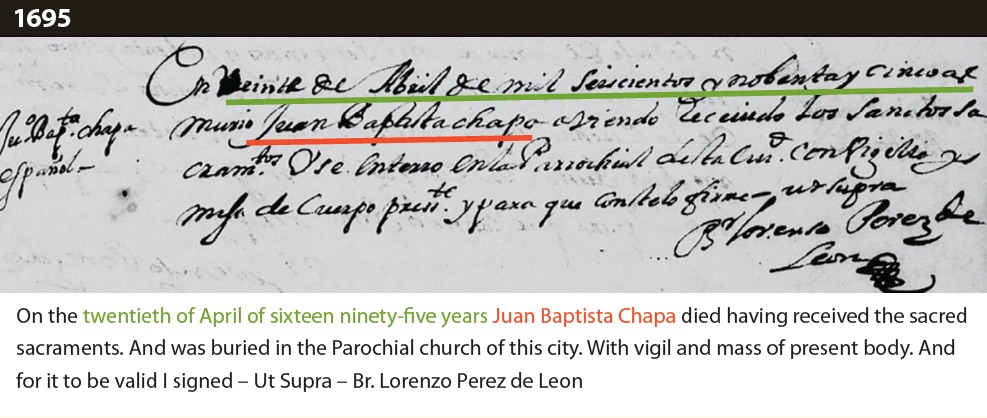 1695
En Veinte de Abril de mil Seiscientos y nobenta y cinco as
Juº Bapta. chapa
español
murio Juan Baptista chapa aviendo Receuido Los Sanctos Sa
cramtos. Y se Enterro En la Parrochial desta Ciud. Con Vigilia y
misa de Cuerpo presste. y para que Conste lo firme – ut supra
Br. Lorenso Perez de
Leon
On the twentieth of April of sixteen ninety-five years Juan Baptista Chapa died having received the sacred
sacraments. And was buried in the Parochial church of this city. With vigil and mass of present body. And
for it to be valid I signed – Ut Supra – Br. Lorenzo Perez de Leon